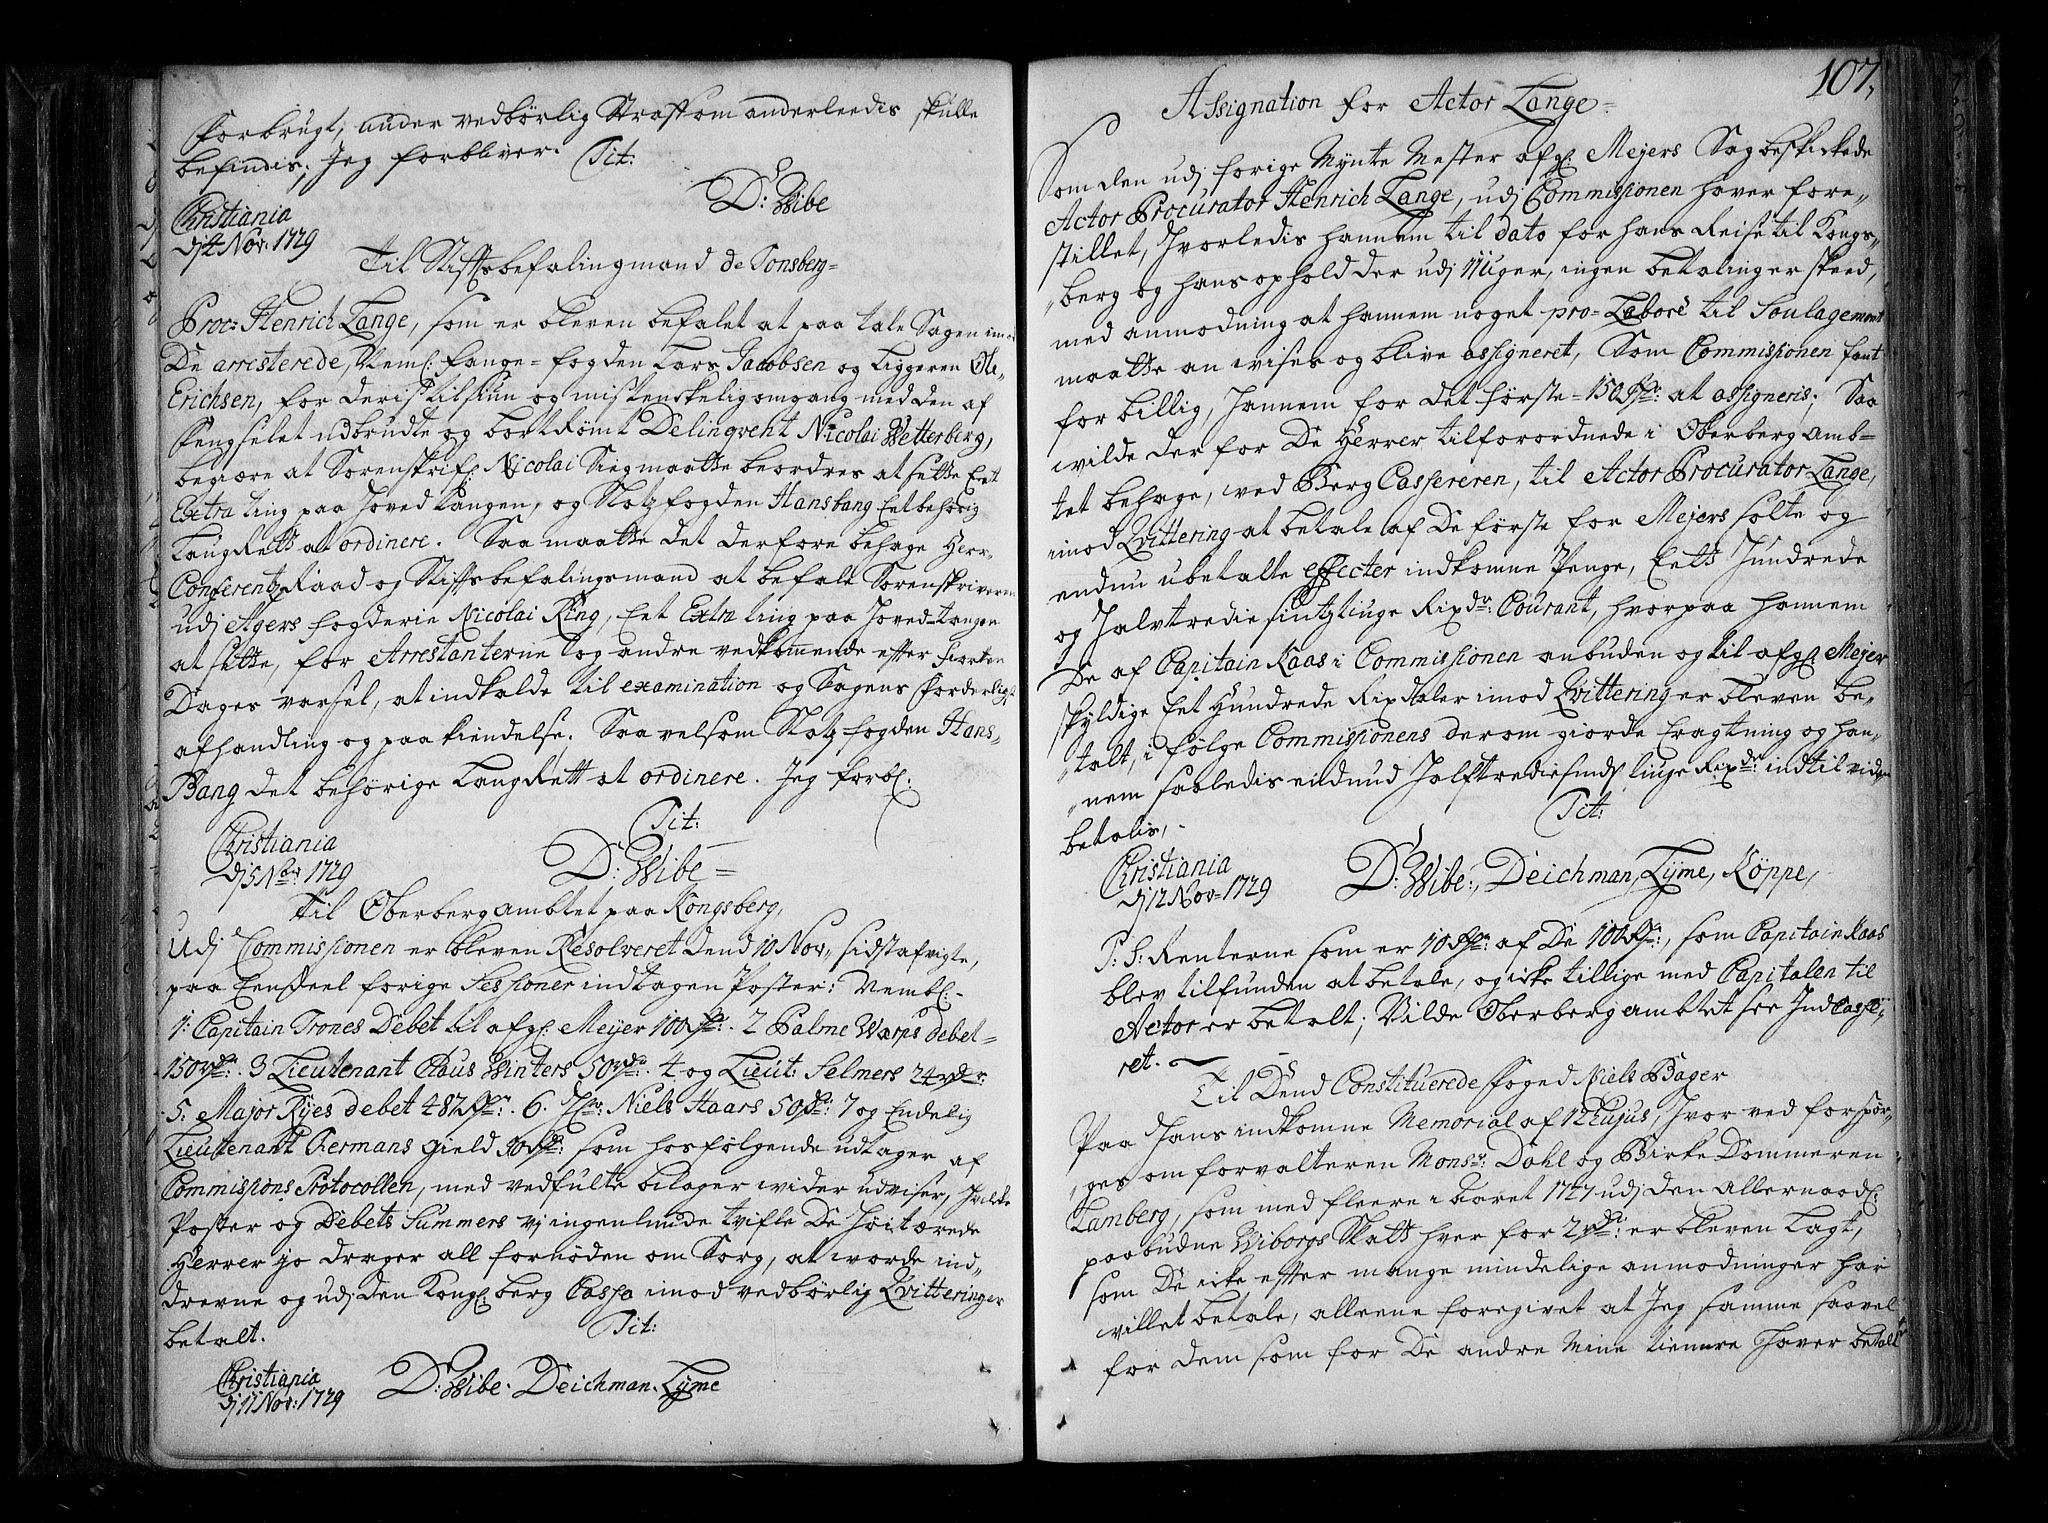 forbrugt, under vedbörlig Straf som anderleedis skulle
befindis; Jeg forbliver. Tit:
D: Wibe
Christiania
dj 4 Nov: 1729
Til Stiftsbefalingmand de Tonsberg=
Proc: Henrich Lange, som er bleven befalet at paa tale Sagen imod
De arresterede, Neml: Fange=fogden Lars Jacobsen og Liggeren Ole
Erichsen, for deris tilsiun og mistenskelig omgang med den af
fengselet udbrudte og bortRömt Delinqvent Nicolai Wetterberg,
begiære at Sorenskrif: Nicolai Sieg maatte beordres at sette Eet
Extra ting paa Hoved Tangen, og Slotzfogden Hans bang Eet behörig
LaugRett at ordinere. Saa maatte det derfore behage Herr
ConferentzRaad og Stiftsbefalingsmand at befale Sorenskriveren
udj Agers fogderie Nicolai Ring, Eet Extra ting paa Hoved=tangen
at sette, for Arrestanterne og andre vedkommende efter fiorten
Dages varsel, at indkalde til examination og Sagens forderligst
afhandling og paa kiendelse; Saavelsom Slotz fogden Hans
Bang det behörige LaugRett at ordinere. Jeg forbl:
Tit:
Christiania
dj 5 Nbr 1729
D: Wibe=
Til Oberbergambtet paa Kongsberg,
Udj Commissionen er bleven Resolveret dend 10 Nov: sidst afvigte,
paa Een deel forige Sessioner indtagen Poster: Nembl:
1: Capitain Trones Debet til afg: Meijer 100 Rdr. 2 Palme Warps debet=
150 rdr. 3 Lieutenant Claus Winters 50 rdr. 4 og Lieut: Selmers 24 rdr:
5: Major Ryes debet 487 Rdr. 6. Hr: Niels Haars 50 Rdr: 7 og Endelig
Lieutenant Hermans gield 30 Rdr: som hosfölgende udtager af
Commissions Protocollen, med vedfulte bilager wider udviser, Hvilke
Poster og Debets Summers vj ingenlunde tvifle De Höitærede
Herrer jo drager all fornöden om Sorg, at worde ind„
drevne og udj den Kongl: berg Cassa imod vedbörlig Qvitteringer
betalt. Tit:
Christiania
dj 11 Nov: 1729
D: Wibe. Deichman. Lyme
107,
Assignation for Actor Lange=
Som den udj forige Mynte Mester afg: Meijers Sag beskickede
Actor Procurator Henrich Lange, udj Commissionen hover fore„
stillet, Hvorledis hannem til dato for hans Reise til Kongs„
„berg og hans ophold der udj 11 uger, ingen betalinger skeed,
med anmodning at hannem noget pro=Labore til Soulagement
maatte anwises og blive assigneret, Som Commissionen fant
for billig, Hannem for det förste=150 Rdr: at assigneris; Saa
wilde der for De Herrer tilforordnede i Oberberg amb=
tet behage, ved Berg Cassereren, til Actor Procurator Lange,
imod Qvittering at betale af De förste for Meijers solte og
endnu ubetalte effecter indkomne Penge, Eett Hundrede
og Halvtredie sintztiuge Rixdr: Courant, hvorpaa hannem
De af Capitain Kaas i Commissionen anbuden og til afg: Mejer
skyldige Eet Hundrede Rixdaler imod Qvittering er bleven be„
„talt, i fölge Commissionens derom giorde Eragtning og han„
„nem saaledis endnud Halftrediesinds tiuge Rixdr: indtil vider
betalis, Tit:
Christiania
dj 12 Nov= 1729
D: Wibe:, Deichman, Lyme, Köppe,
P: S: Renterne som er 10 Rdr: af De 100 Rdr:, som Capitain Kaas
blev tilfunden at betale, og icke tillige med Capitalen til
Actor er betalt; Vilde Oberbergambtet see Indcasse„
ret.
Til Dend Constituerede foged Niels Bager
Paa Hans indkomne Memorial af 12 hujus, Hvor ved forspör„
„ges om forvalteren Monsr: Dahl og Birke Dommeren
Lamberg, som med fleere i Aaret 1727 udj den Allernaadl:
paabudne Wiborgs Skatt hver for 2 rdr: er bleven Lagt,
som De icke efter mange mindelige anmodninger har
villet betale, alleene foregivet at Jeg samme saavel
for dem som for De andre Mine tienere Hover betalt